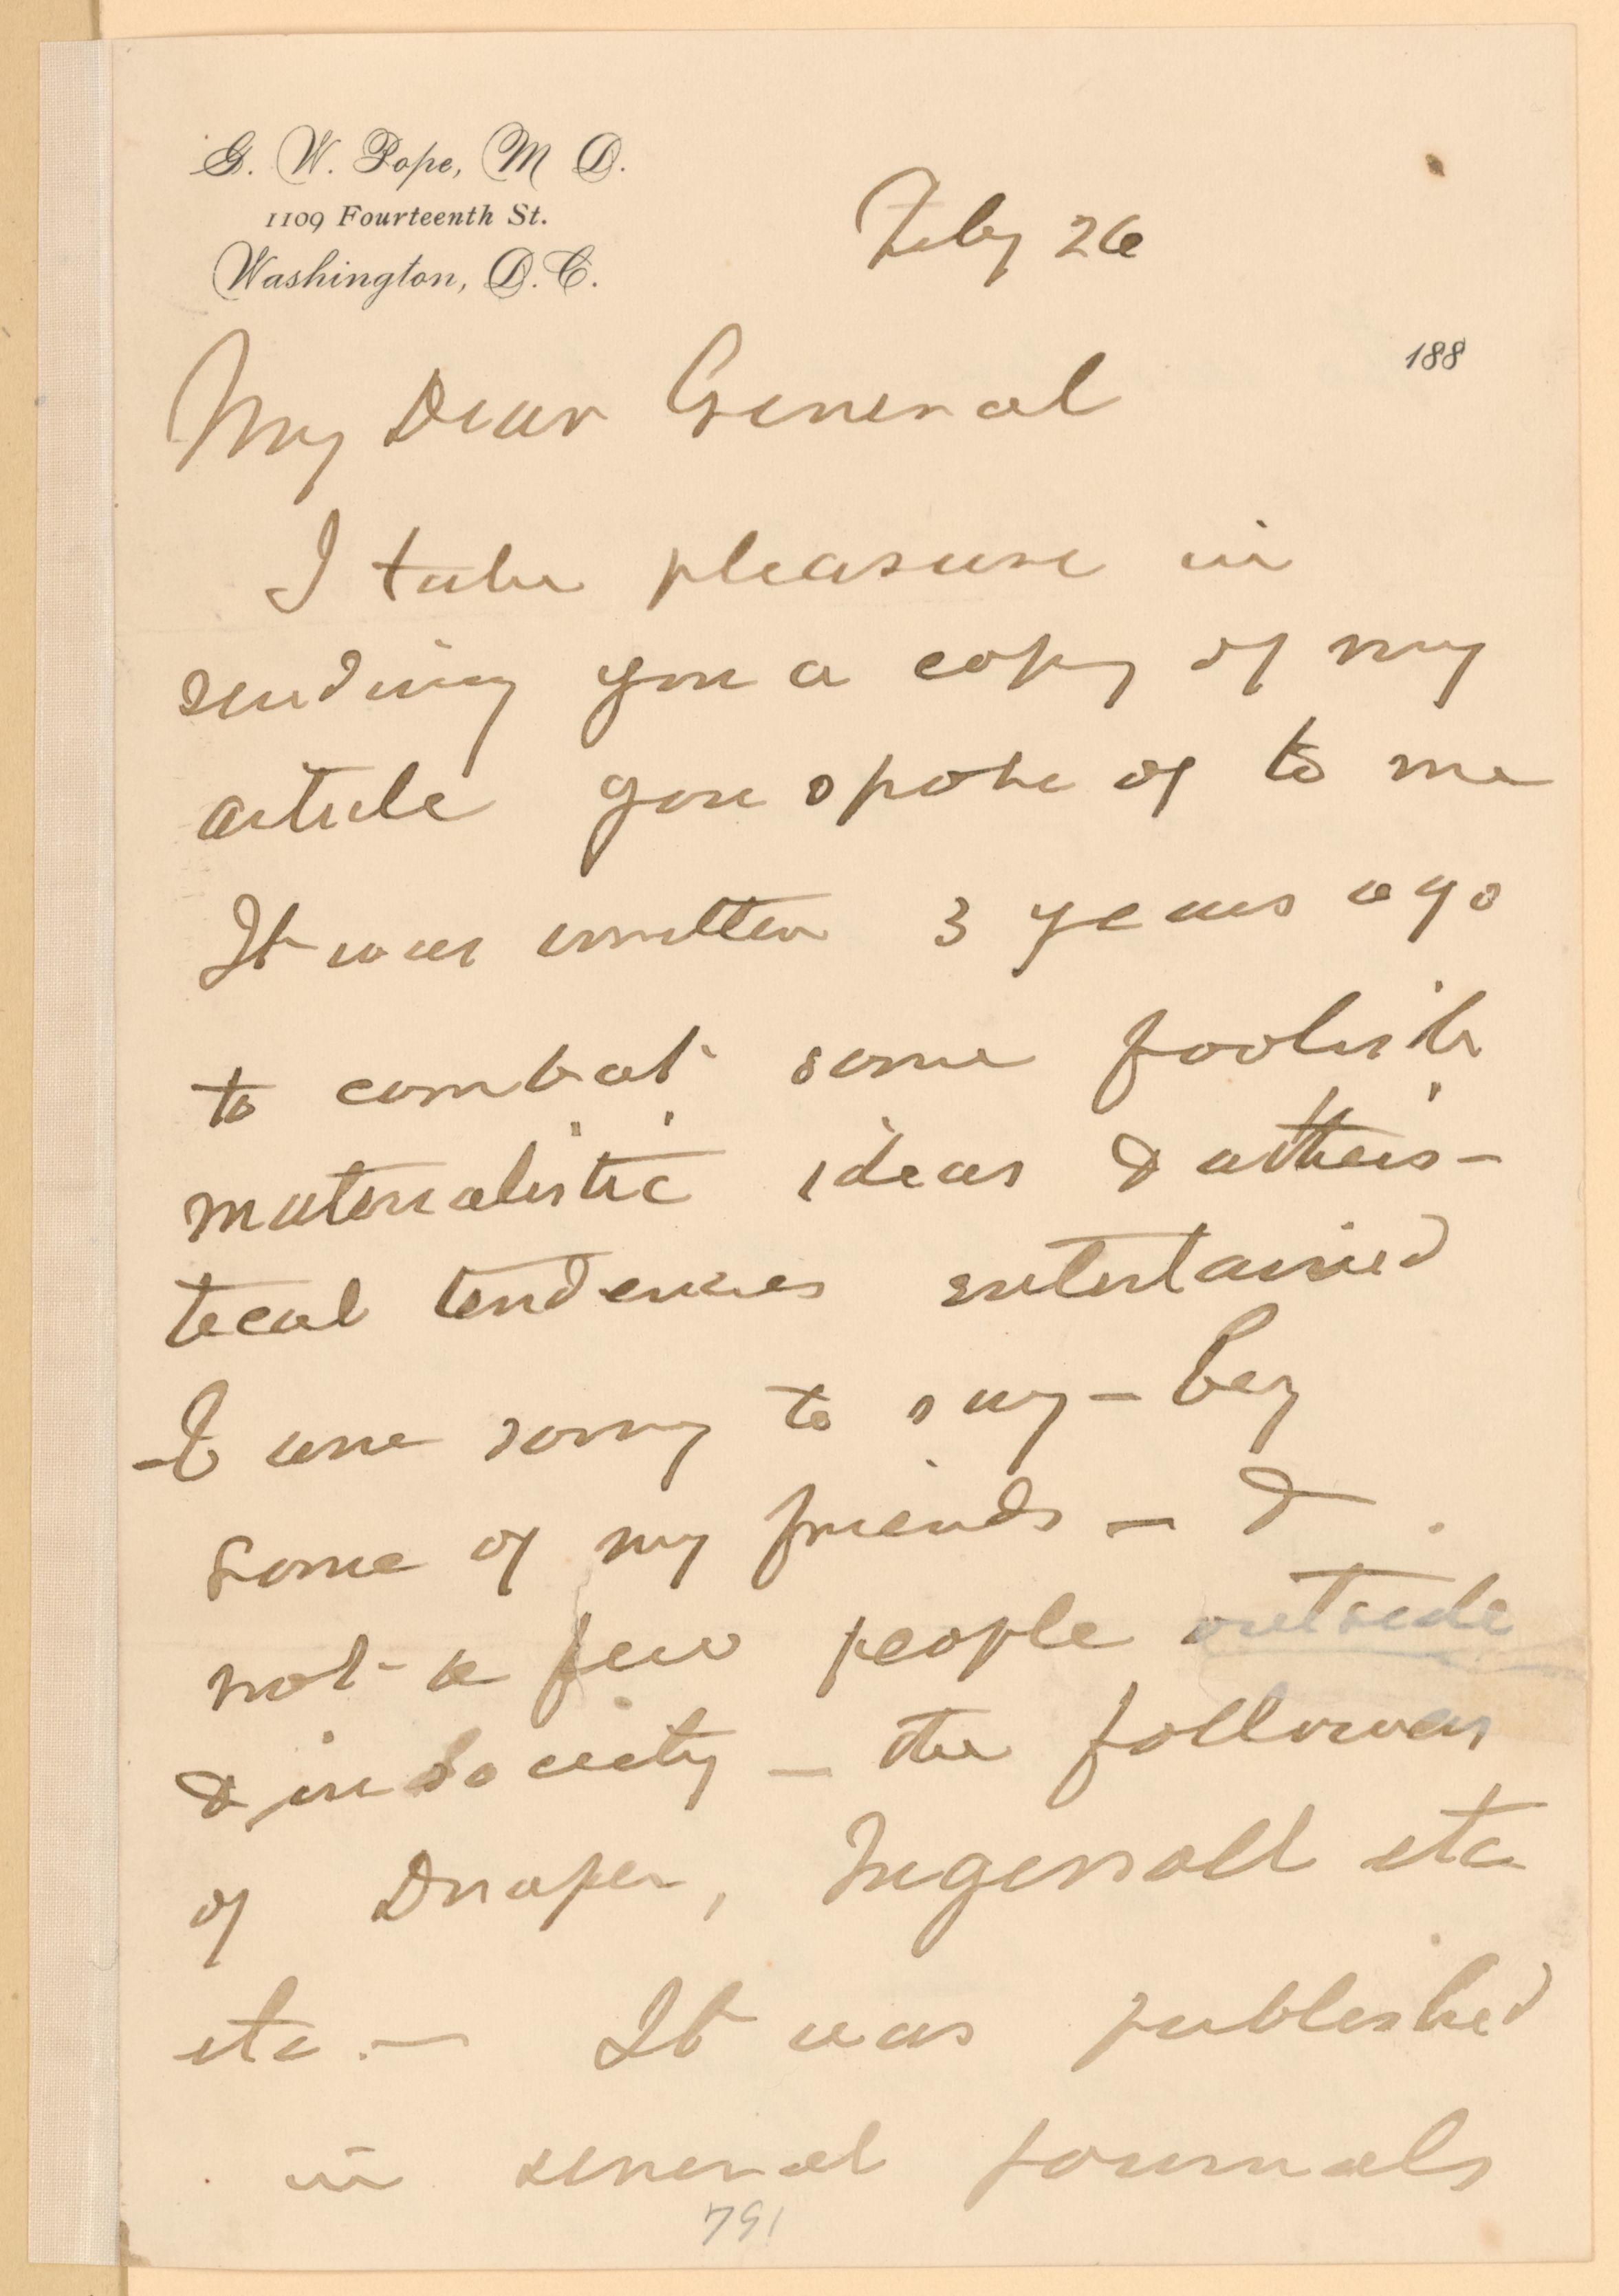 G. W. Pope, M D.
1109 Fourteenth St.
Washington, D.C.
Feby 26
188
My Dear General
I take pleasure in
sending you a copy of my
article you spoke of to me
It was written 3 years ago
to combat some foolish
materialistic ideas & atheis-
tical tendencies entertained
- I am sorry to say - by
some of my friends - &
not a few people outside
& in society - the followers
of Draper, Ingersoll etc
etc. - It was published
in several journals
791